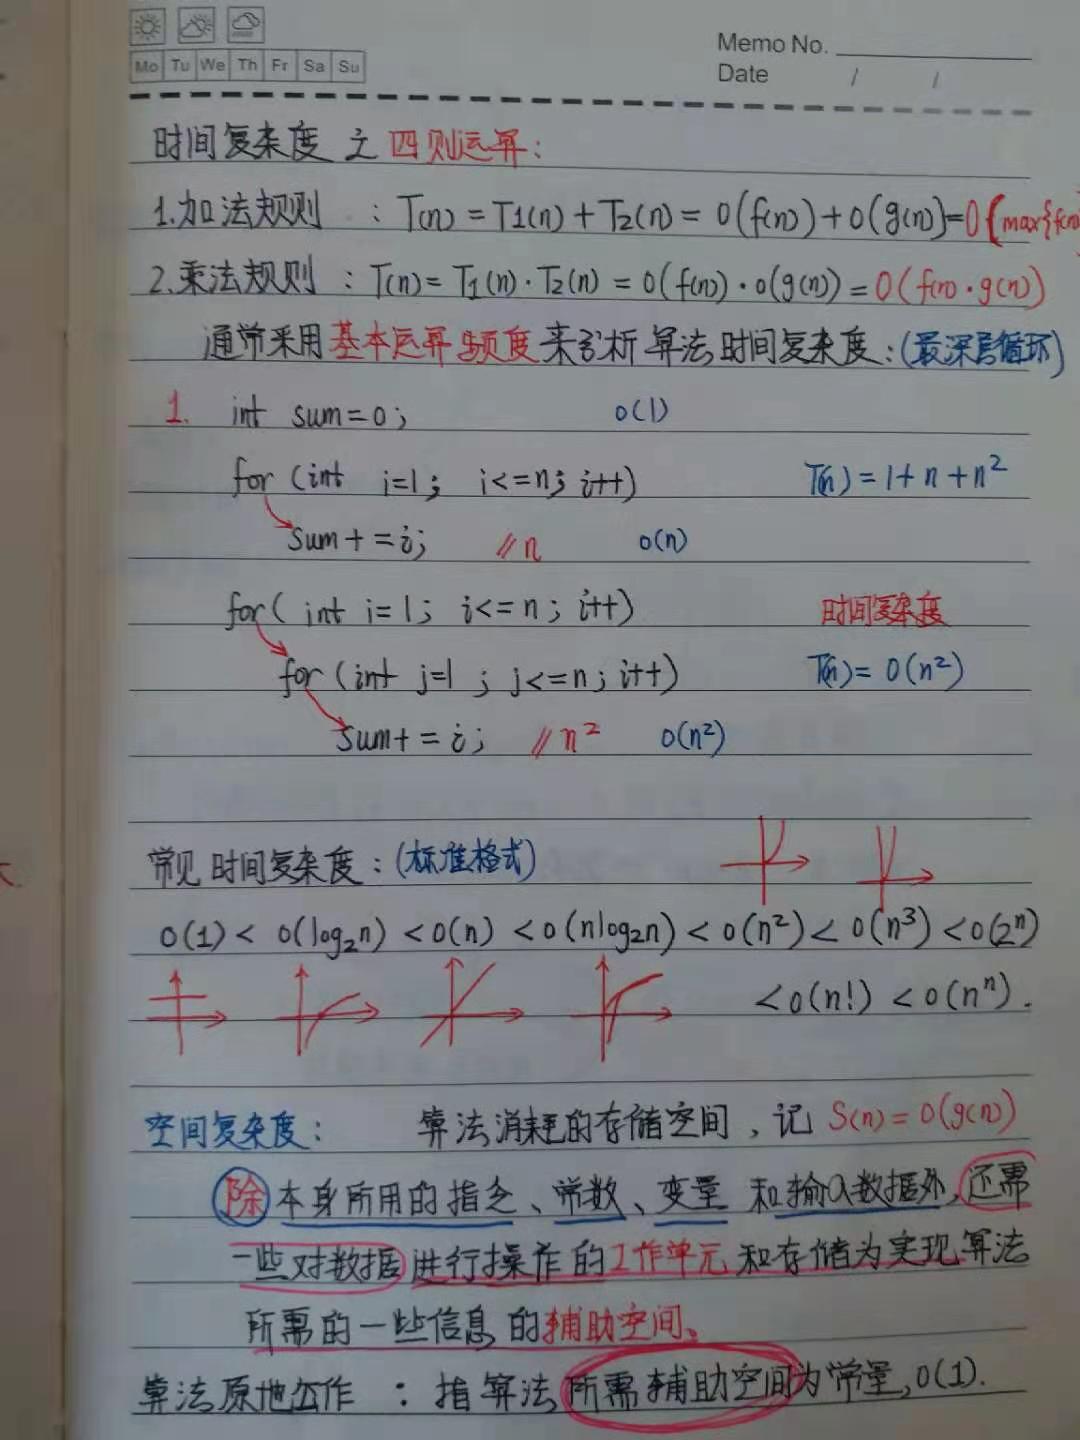 Mo Tu We Th Fr Sa Su
Memo No.
Date / /
时间复杂度 之 四则运算:
1.加法规则 : T(n) = T1(n) + T2(n) = O(f(n)) + O(g(n)) = O(max{f(n)
2.乘法规则 : T(n) = T1(n)·T2(n) = O(f(n))·O(g(n)) = O(f(n)·g(n))
通常采用基本运算频度来分析算法时间复杂度:(最深层循环)
1. int sum=0; O(1)
for (int i=1; i<=n; i++) T(n)=1+n+n²
sum+=i; //n O(n)
for( int i=1; i<=n; i++) 时间复杂度
for (int j=1; j<=n; i++) T(n)=O(n²)
sum+=i; //n² O(n²)
常见时间复杂度:(标准格式)
O(1) < O(log₂n) < O(n) < O(nlog₂n) < O(n²) < O(n³) < O(2ⁿ)
< O(n!) < O(nⁿ).
空间复杂度: 算法消耗的存储空间,记 S(n)=O(g(n))
除本身所用的指令、常数、变量和输入数据外,还需
一些对数据进行操作的工作单元和存储为实现算法
所需的一些信息的辅助空间。
算法原地工作 : 指算法所需辅助空间为常量,O(1).